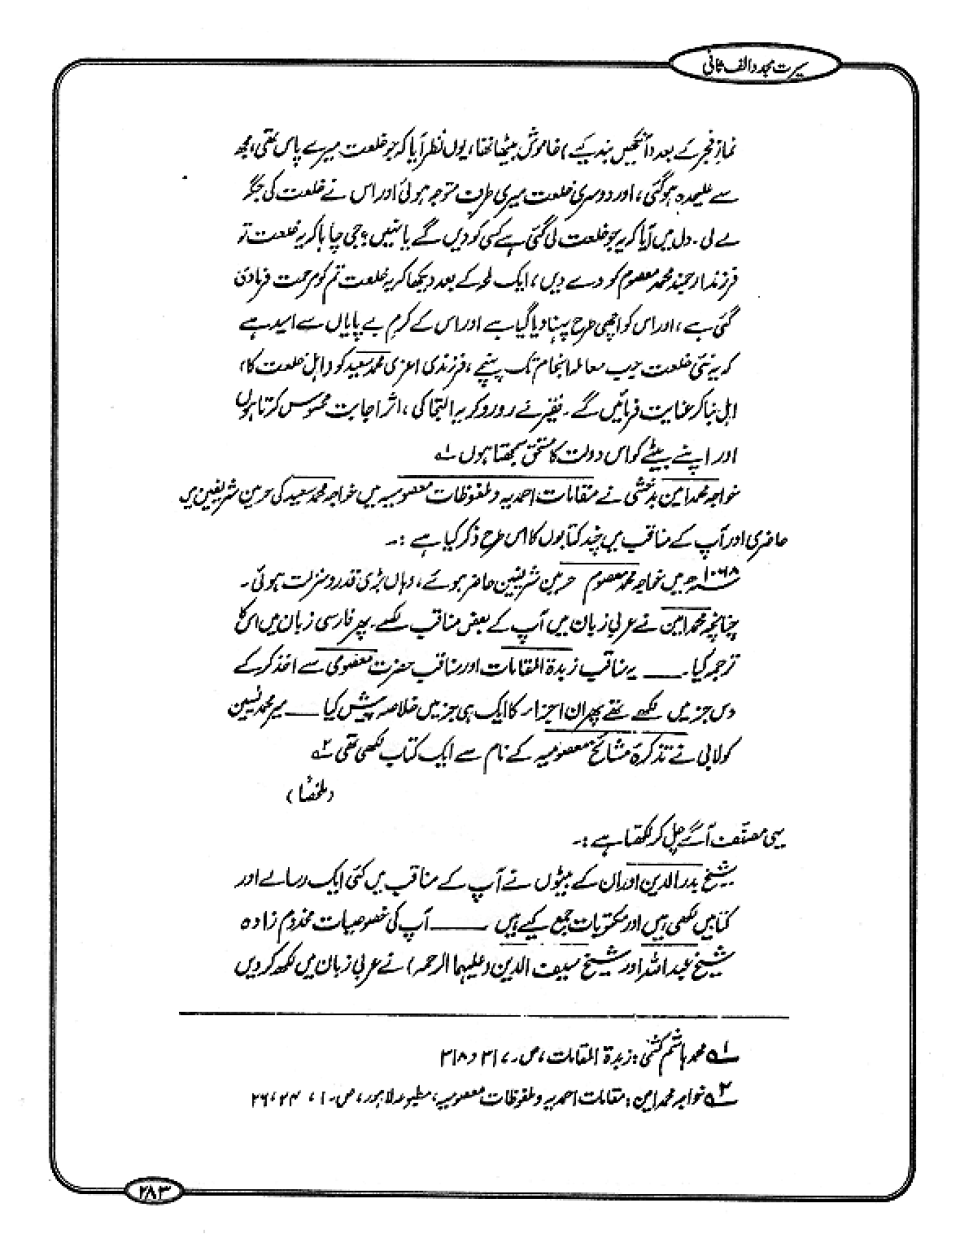 سیرت مجدد الف ثانی
نمازِ فجر کے بعد (آنکھیں بند کیے) خاموش بیٹھا تھا، یوں نظر آیا کہ جو خلعت میرے پاس تھی، مجھ
سے علیحدہ ہوگئی، اور دوسری خلعت میری طرف متوجہ ہوئی اور اس نے خلعت کی جگہ
لے لی۔ دل میں آیا کہ یہ جو خلعت لی گئی ہے کسی کو دیں گے یا نہیں؟ جی چاہا کہ یہ خلعت تو
فرزند ارجمند محمد معصوم کو دے دیں، ایک لمحہ کے بعد دیکھا کہ یہ خلعت تم کو مرحمت فرما دی
گئی ہے، اور اس کو اچھی طرح پہنا دیا گیا ہے اور اس کے کرمِ بے پایاں سے امید ہے
کہ یہ نئی خلعت جب معاملہ انجام تک پہنچے، فرزندی اعزی محمد سعید کو (اہلِ خلعت کا)
اہل بنا کر عنایت فرمائیں گے۔ فقیر نے رو رو کر یہ التجا کی، اثرِ اجابت محسوس کرتا ہوں
اور اپنے بیٹے کو اس دولت کا مستحق سمجھتا ہوں ؎۱
خواجہ محمد امین بدخشی نے مقامات احمدیہ و ملفوظات معصومیہ میں خواجہ محمد سعید کی حرمین شریفین میں
حاضری اور آپ کے مناقب میں چند کتابوں کا اس طرح ذکر کیا ہے :۔
۱۰۶۸ھ میں خواجہ محمد معصوم حرمین شریفین حاضر ہوئے، وہاں بڑی قدر و منزلت ہوئی۔
چنانچہ محمد امین نے عربی زبان میں آپ کے بعض مناقب لکھے۔ پھر فارسی زبان میں اس کا
ترجمہ کیا۔ ــــ یہ مناقب زبدۃ المقامات اور مناقب حضرت معصومی سے اخذ کر کے
دس جز میں لکھے تھے پھر ان اجزار کا ایک ہی جز میں خلاصہ پیش کیا ــــ میر محمد نسین
کولابی نے تذکرۃ مشائخ معصومیہ کے نام سے ایک کتاب لکھی تھی ؎۲
(ملخصاً)
یہی مصنّف آگے چل کر لکھتا ہے :۔
شیخ بدر الدین اور ان کے بیٹوں نے آپ کے مناقب میں کئی ایک رسالے اور
کتابیں لکھی ہیں اور مکتوبات جمع کیے ہیں ــــ آپ کی خصوصیات مخدوم زادہ
شیخ عبداللہ اور شیخ سیف الدین (علیہما الرحمہ) نے عربی زبان میں لکھ کر دیں
؎۱ محمد ہاشم کشمی: زبدۃ المقامات، ص۔ ۳۱۷ و ۳۱۸
؎۲ خواجہ محمد امین: مقامات احمدیہ و ملفوظات معصومیہ، مطبوعہ لاہور، ص۔ ۱، ۲۴، ۲۶
۲۸۳